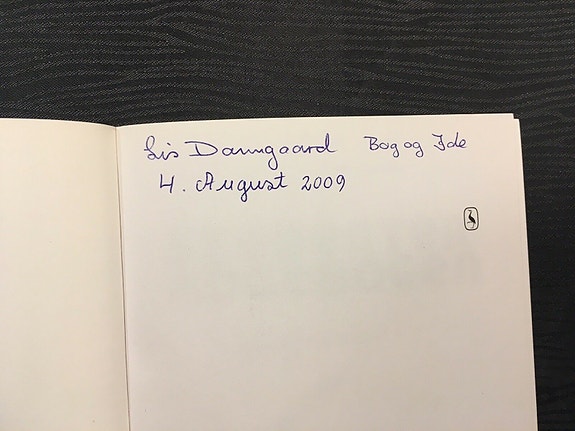 Lis Damgaard Bog og Ide
4. August 2009